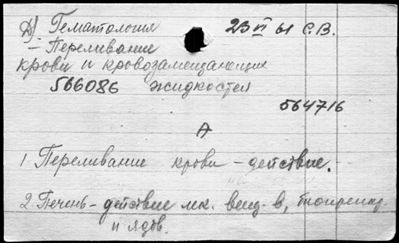 Д) Гематология 23 VI 61 С.В.
– Переливание
крови и кровозамещающих
566086 жидкостей
564716
А
1 Переливание крови – действие.
2. Печень – действие лек. вещ-в,
и ядов.